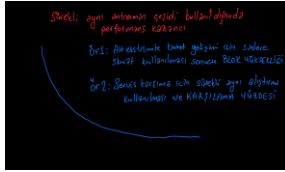 Sürekli aynı antrenman çeşidi kullanıldığında
performans kazancı
ör1: Alt ekstremite kuvvet gelişimi için sadece
squat kullanılması sonucu BLOK YÜKSEKLİĞİ
ör2: Servis karşılama için sürekli aynı alıştırma
kullanılması ve KARŞILAMA YÜZDESİ